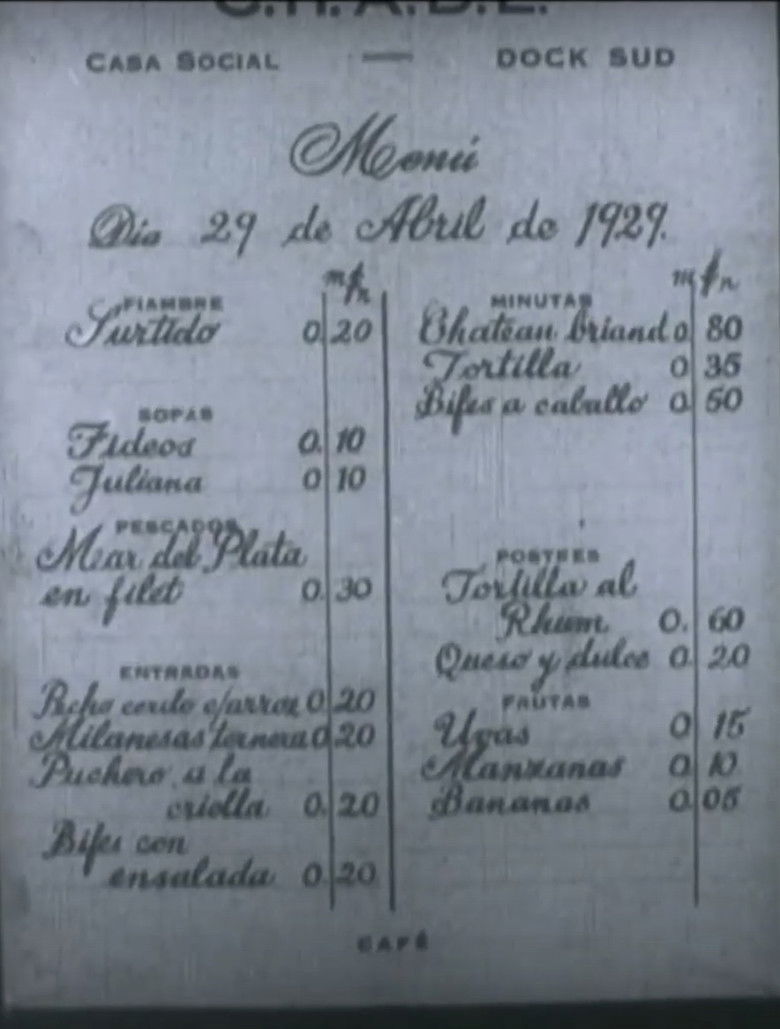 C.H.A.D.E.
CASA SOCIAL — DOCK SUD
Menú
Día 29 de Abril de 1929.
m$n
FIAMBRE
Surtido 0.20
SOPAS
Fideos 0.10
Juliana 0.10
PESCADOS
Mar del Plata
en filet 0.30
ENTRADAS
cerdo c/arroz 0.20
Milanesas ternera 0.20
Puchero a la
criolla 0.20
Bifes con
ensalada 0.20
m$n
MINUTAS
Chateau briand 0.80
Tortilla 0.35
Bifes a caballo 0.50
POSTRES
Tortilla al
Rhum 0.60
Queso y dulce 0.20
FRUTAS
Uvas 0.15
Manzanas 0.10
Bananas 0.05
CAFÉ